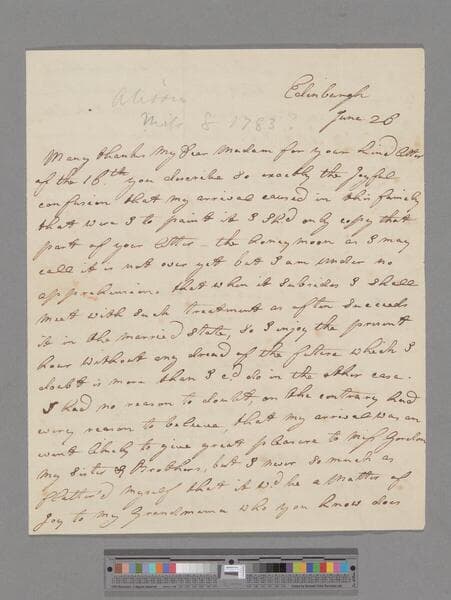 Edinburgh
June 26
1783?
Many thanks My Dear Madam for your kind letter
of the 16th you describe so exactly the Joyful
confusion that my arrival caused in this family
that were I to paint it I shd only copy that
part of your letter – the honeymoon as I may
call it is not over yet but I am under no
apprehensions that when it subsides I shall
meet with such treatment as often succeeds
it in the married state, so I enjoy the present
hour without any dread of the future which I
doubt is more than I cd do in the other case.
I had no reason to doubt on the contrary had
every reason to believe that my arrival was an
event likely to give great pleasure to Miss Gordon
my Sister & Brothers, but I never so much as
flatter'd myself that it wd be a Matter of
Joy to my Grandmama who you know does